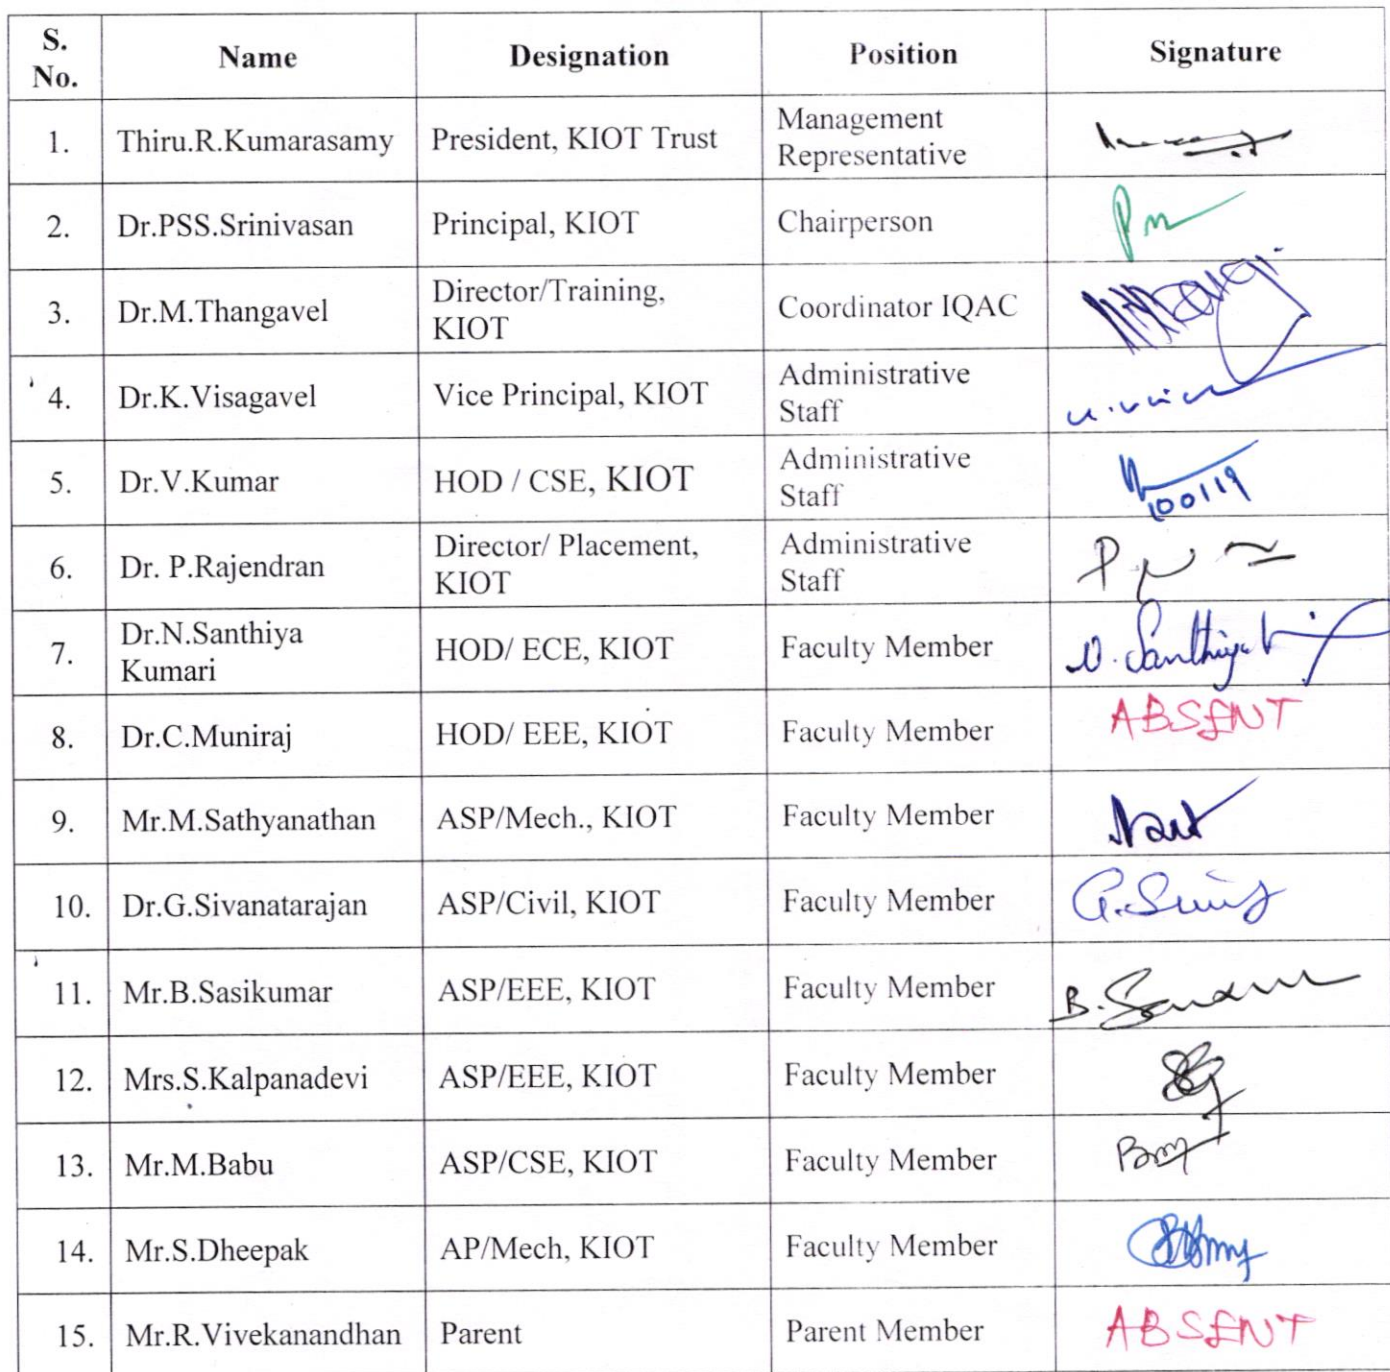 S. No. Name Designation Position Signature
1. Thiru.R.Kumarasamy President, KIOT Trust Management Representative
2. Dr.PSS.Srinivasan Principal, KIOT Chairperson
3. Dr.M.Thangavel Director/Training, KIOT Coordinator IQAC
4. Dr.K.Visagavel Vice Principal, KIOT Administrative Staff
5. Dr.V.Kumar HOD / CSE, KIOT Administrative Staff 100119
6. Dr. P.Rajendran Director/ Placement, KIOT Administrative Staff
7. Dr.N.Santhiya Kumari HOD/ ECE, KIOT Faculty Member
8. Dr.C.Muniraj HOD/ EEE, KIOT Faculty Member ABSENT
9. Mr.M.Sathyanathan ASP/Mech., KIOT Faculty Member
10. Dr.G.Sivanatarajan ASP/Civil, KIOT Faculty Member
11. Mr.B.Sasikumar ASP/EEE, KIOT Faculty Member
12. Mrs.S.Kalpanadevi ASP/EEE, KIOT Faculty Member
13. Mr.M.Babu ASP/CSE, KIOT Faculty Member
14. Mr.S.Dheepak AP/Mech, KIOT Faculty Member
15. Mr.R.Vivekanandhan Parent Parent Member ABSENT